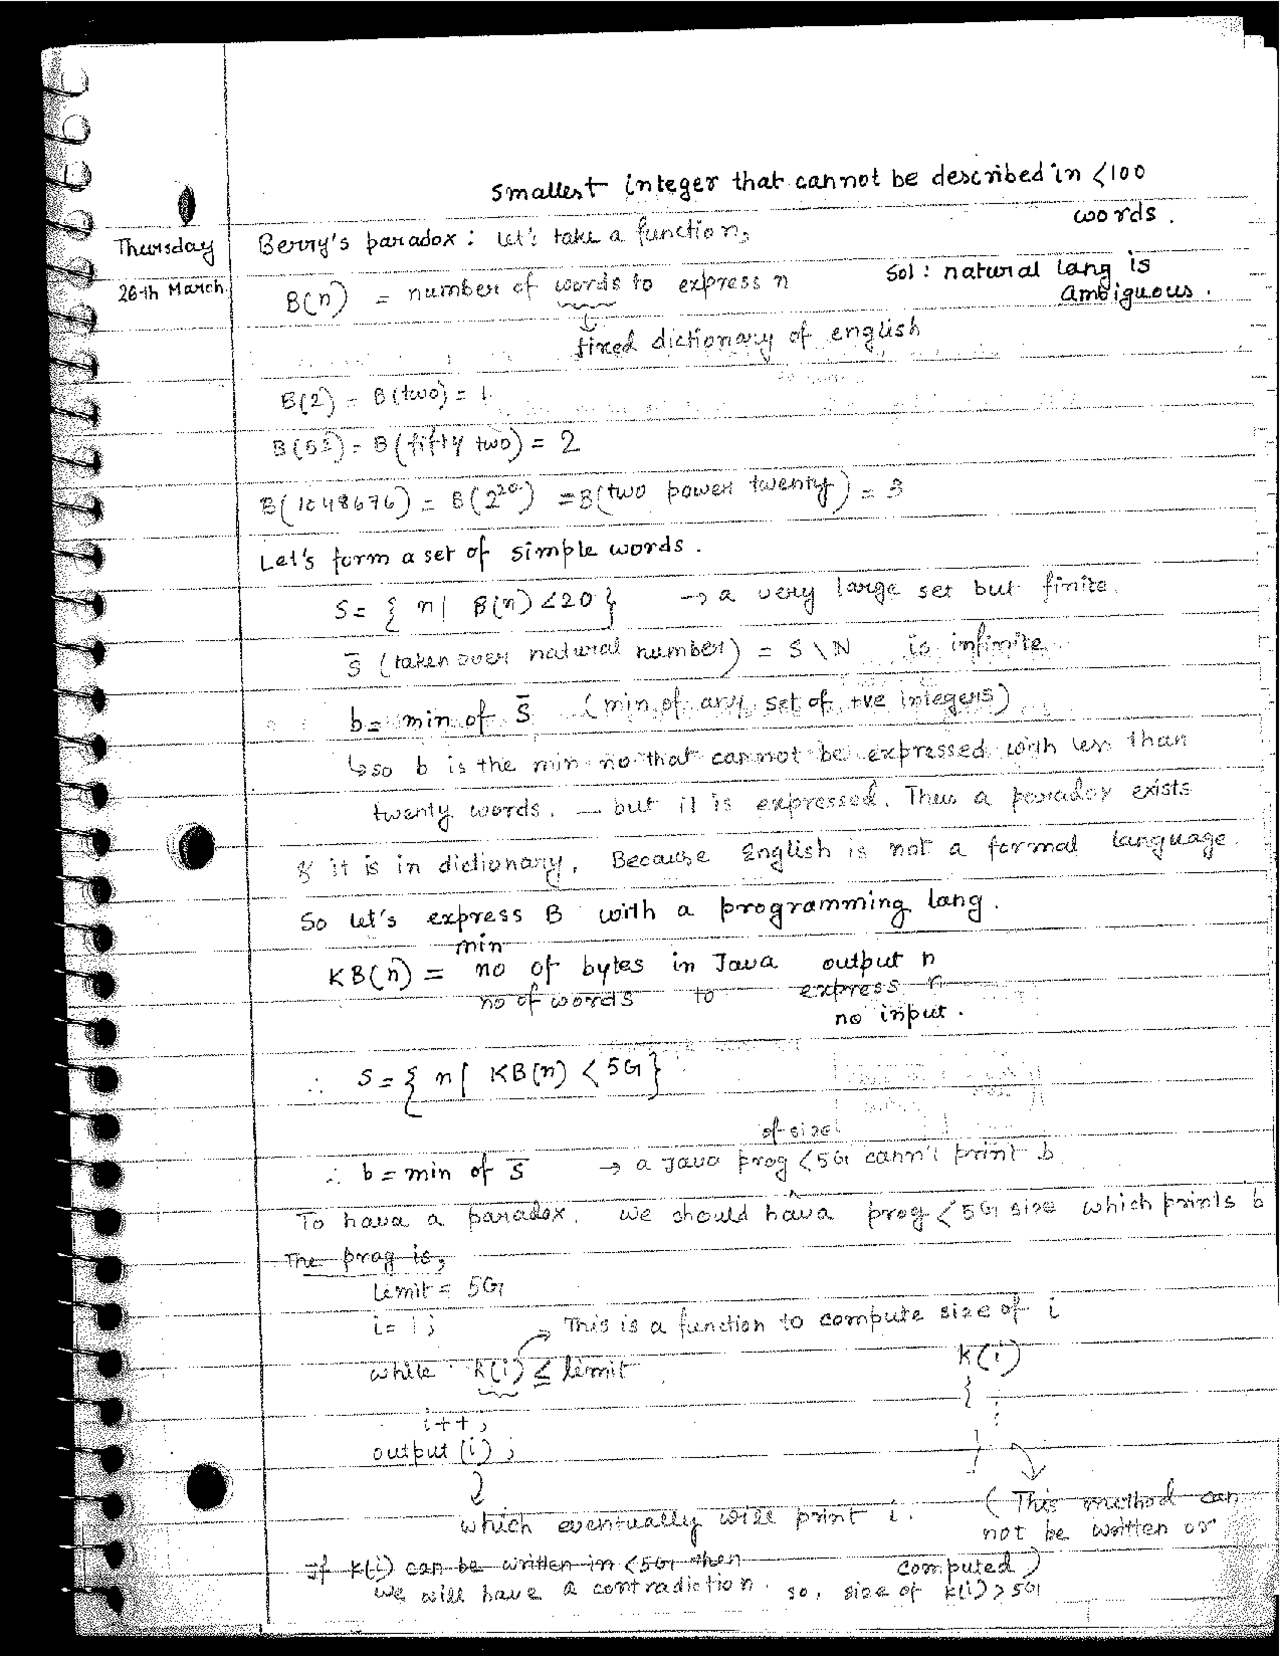 smallest integer that cannot be described in <100
words.
Thursday
26th March.
Berry's paradox: let's take a function,
B(n) = number of words to express n
Sol: natural lang is
ambiguous.
fixed dictionary of english
B(2) = B(two) = 1
B(52) = B(fifty two) = 2
B(1048676) = B(2^20) = B(two power twenty) = 3
Let's form a set of simple words.
S = { n | B(n) <20 } → a very large set but finite.
S̅ (taken over natural number) = S \ N is infinite
b = min of S̅ (min of any set of +ve integers)
↳ so b is the min no that cannot be expressed with less than
twenty words. — but it is expressed. Thus a paradox exists
& it is in dictionary. Because English is not a formal language.
So let's express B with a programming lang.
min
KB(n) = no of bytes in Java output n
no of words to express n
no input.
∴ S = { n | KB(n) < 5G }
of size
∴ b = min of S̅ → a Java prog <5G cann't print b
To hava a paradox, we should hava prog <5G size which prints b
The prog is,
Limit = 5G
i = 1;
→ This is a function to compute size of i
while k(i) ≤ limit
k(i)
{
⋮
}
i++;
output (i);
which eventually will print i.
(This method can
not be written or
computed)
If k(i) can be written in <5G then
we will have a contradiction. so, size of k(i) > 5G